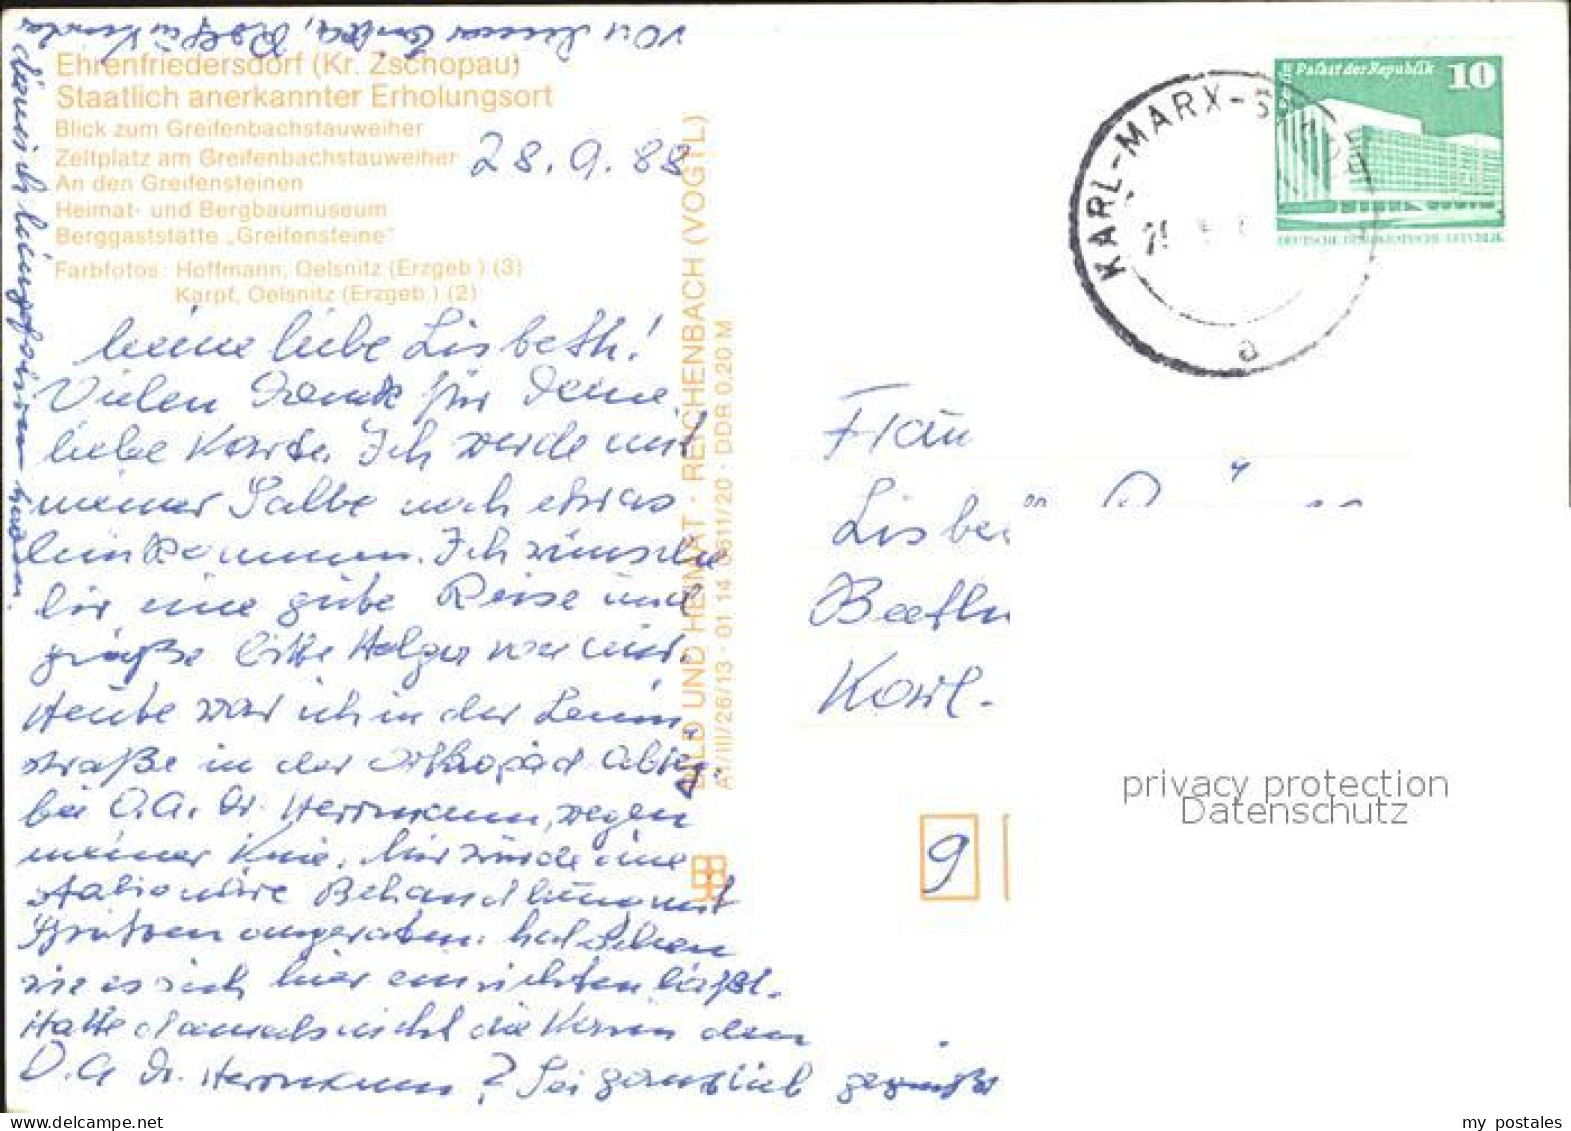 Ehrenfriedersdorf (Kr. Zschopau)
Staatlich anerkannter Erholungsort
Blick zum Greifenbachstauweiher
Zeltplatz am Greifenbachstauweiher
An den Greifensteinen
Heimat- und Bergbaumuseum
Berggaststätte „Greifensteine"
Farbfotos: Hoffmann, Oelsnitz (Erzgeb.) (3)
Karpf, Oelsnitz (Erzgeb.) (2)
28.9.88
Meine liebe Lisbeth!
Vielen Dank für Deine
liebe Karte. Ich werde mit
meiner Salbe noch etwas
hinkommen. Ich wünsche
Dir eine gute Reise und
grüße bitte Holger von mir.
Heute war ich in der Lenin-
straße in der Orthopäd Abtei.
bei O.A. Dr. Herrmann, wegen
meiner Knie. Mir würde eine
stationäre Behandlung mit
Spritzen angeraten. mal sehen
wie es sich hier einrichten läßt.
Hatte damals nicht die Karin den
O.A Dr. Herrmann? Sei ganz lieb gegrüßt
von Deiner
BILD UND HEIMAT · REICHENBACH (VOGTL)
A1/III/26/13 · 01 14 0611/20 · DDR 0,20 M
KARL-MARX-STADT
a
Palast der Republik 10
DEUTSCHE DEMOKRATISCHE REPUBLIK
Frau
Lisbe
Beeth
Karl-
9
privacy protection
Datenschutz
my postales